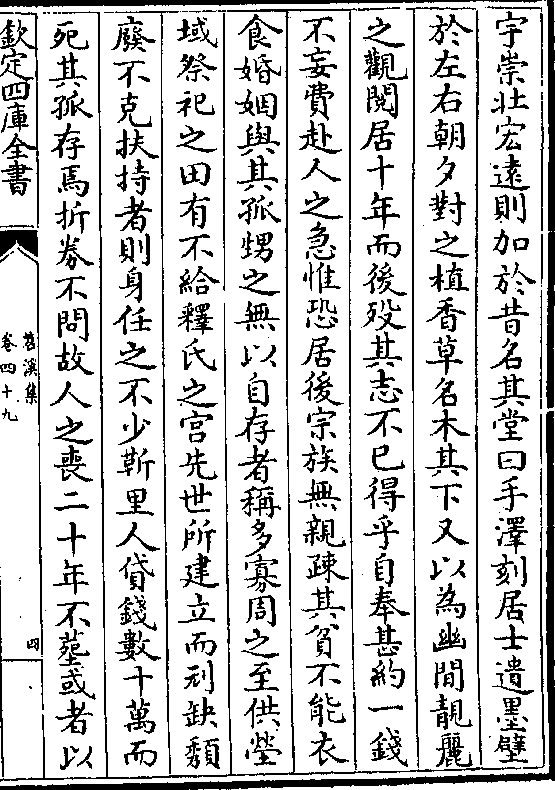 宇崇壯宏遠則加於昔名其堂曰手澤刻居士遺墨壁
於左右朝夕對之植香草名木其下又以為幽閒靚麗
之觀閱居十年而後殁其志不已得乎自奉甚約一錢
不妄費赴人之急惟恐居後宗族無親疎其貧不能衣
食婚姻與其孤甥之無以自存者稱多寡周之至供塋
域祭祀之田有不給釋氏之宫先世所建立而刓缺頽
廢不克扶持者則身任之不少靳里人貸錢數十萬而
死其孤存焉折券不問故人之喪二十年不塟或者以
欽定四庫全書
苕溪集
卷四十九
四